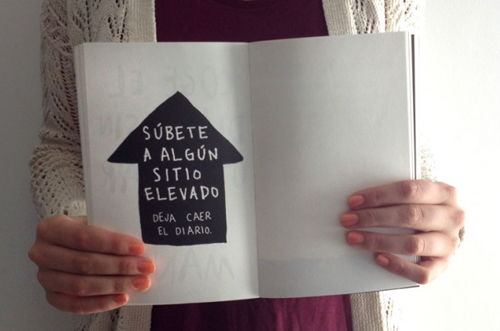 SÚBETE
A ALGÚN
SITIO
ELEVADO
DEJA CAER
EL DIARIO.